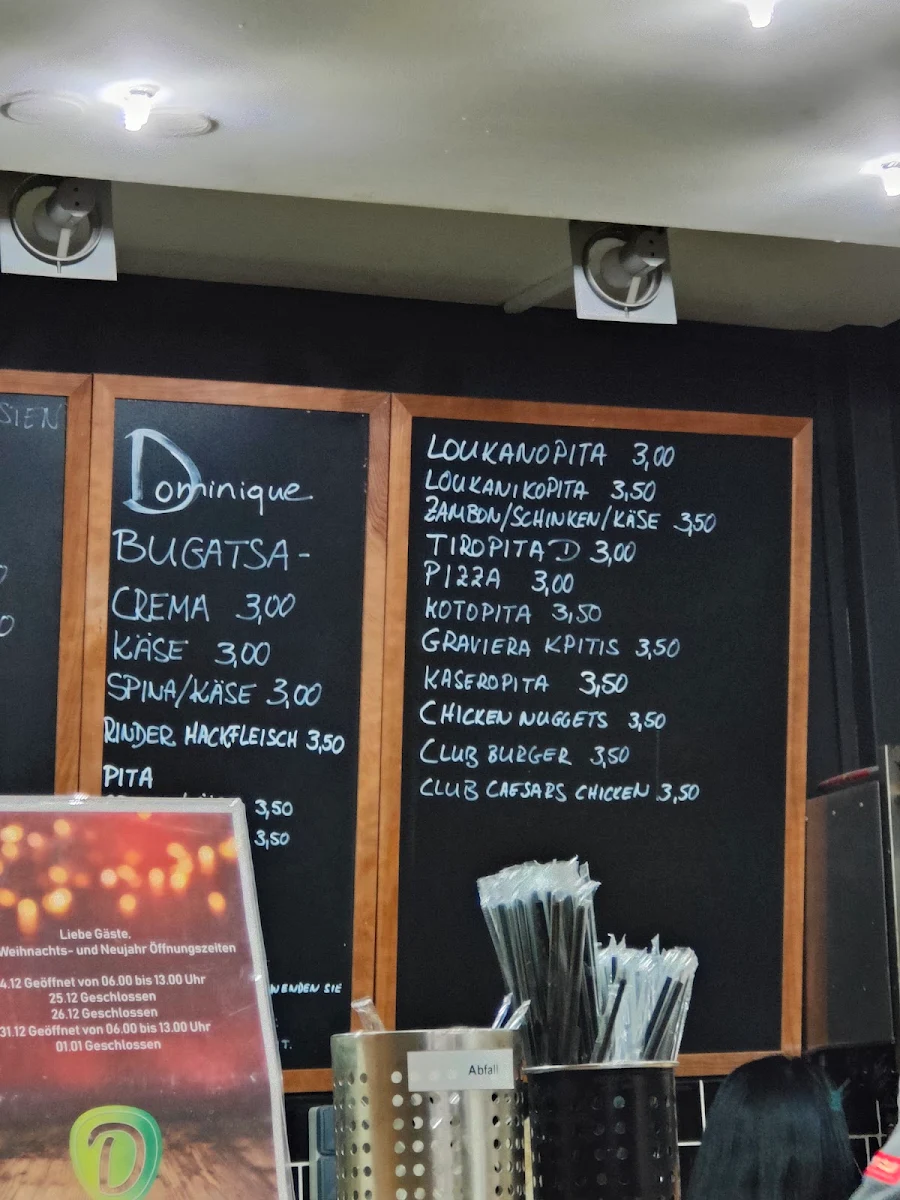 SIEN
Dominique
BUGATSA-
CREMA 3,00
KÄSE 3,00
SPINA/KÄSE 3,00
RINDER HACKFLEISCH 3,50
PITA
3,50
3,50
WENDEN SIE
T.
LOUKANOPITA 3,00
LOUKANIKOPITA 3,50
ZAMBON/SCHINKEN/KÄSE 3,50
TIROPITA D 3,00
PIZZA 3,00
KOTOPITA 3,50
GRAVIERA KPITIS 3,50
KASEROPITA 3,50
CHICKEN NUGGETS 3,50
CLUB BURGER 3,50
CLUB CAESARS CHICKEN 3,50
Liebe Gäste,
Weihnachts- und Neujahr Öffnungszeiten
4.12 Geöffnet von 06.00 bis 13.00 Uhr
25.12 Geschlossen
26.12 Geschlossen
31.12 Geöffnet von 06.00 bis 13.00 Uhr
01.01 Geschlossen
D
Abfall